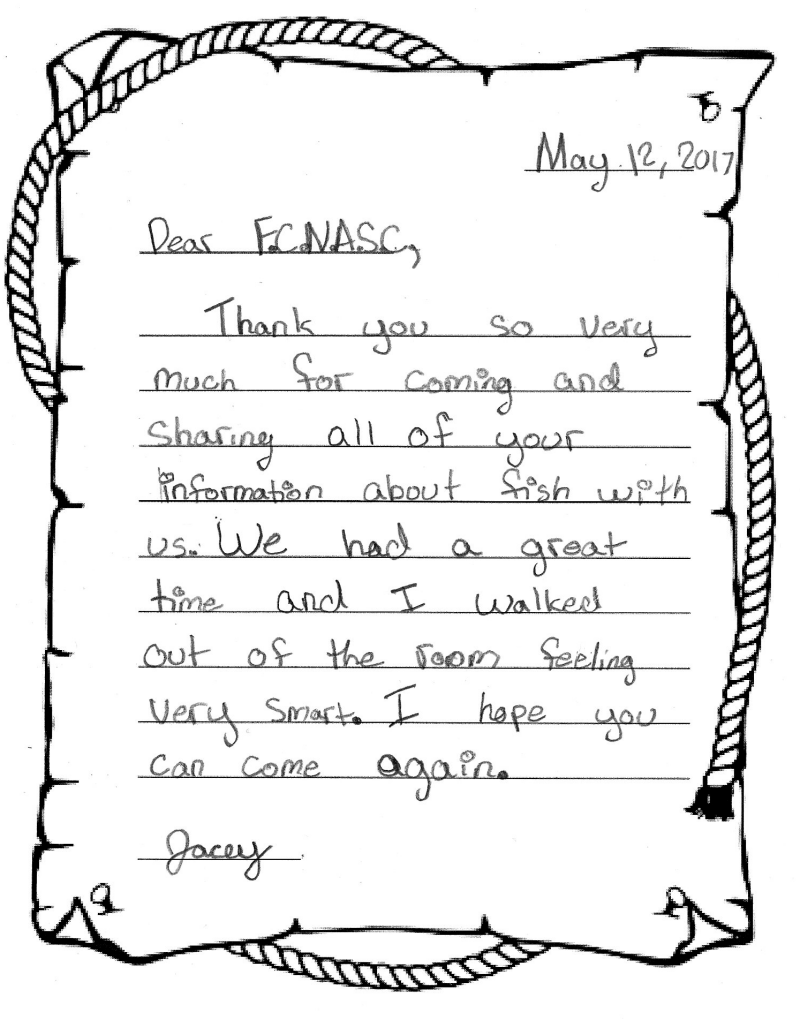 May 12, 2017
Dear F.C.N.A.S.C,
Thank you so very
much for coming and
sharing all of your
information about fish with
us. We had a great
time and I walked
out of the room feeling
very smart. I hope you
can come again.
Jacey